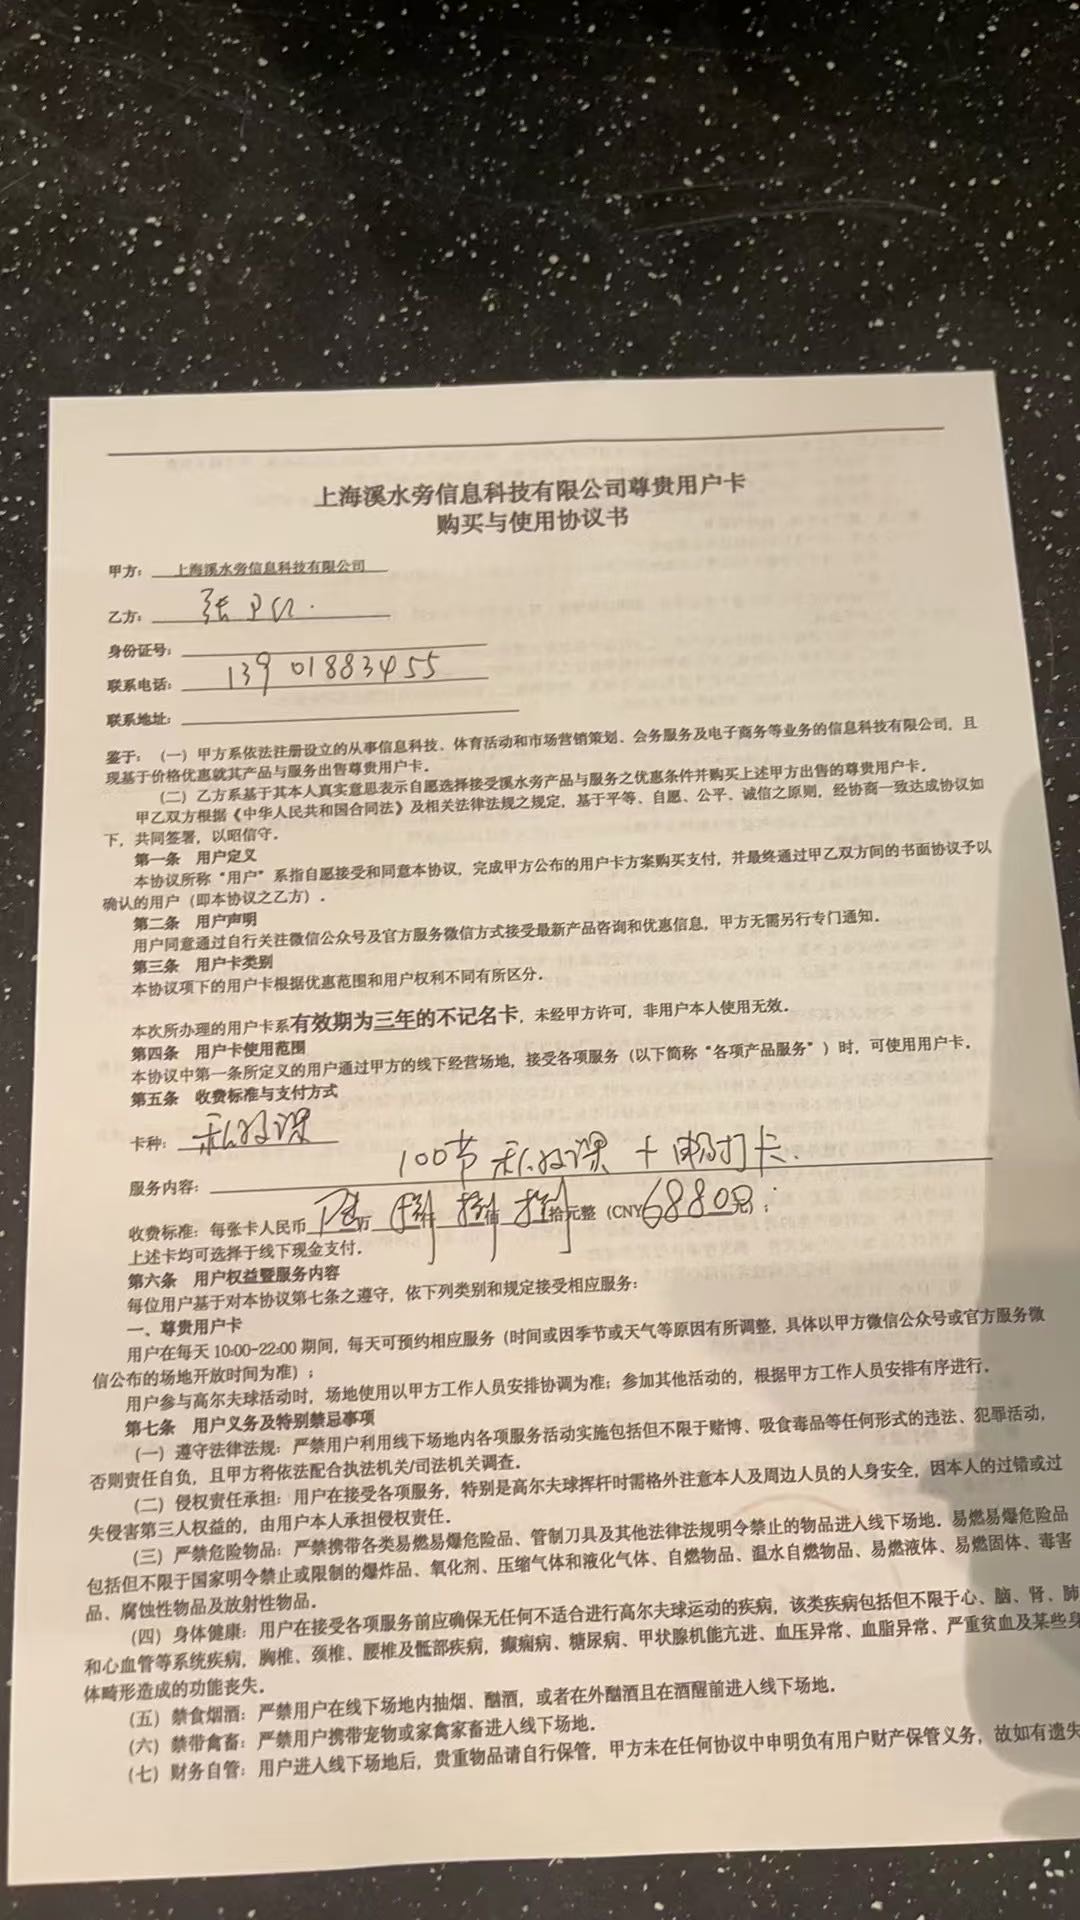 上海溪水旁信息科技有限公司尊贵用户卡
购买与使用协议书
甲方：上海溪水旁信息科技有限公司
乙方：张
身份证号：
联系电话：13901883455
联系地址：
鉴于：（一）甲方系依法注册设立的从事信息科技、体育活动和市场营销策划、会务服务及电子商务等业务的信息科技有限公司，且
现基于价格优惠就其产品与服务出售尊贵用户卡．
（二）乙方系基于其本人真实意思表示自愿选择接受溪水旁产品与服务之优惠条件并购买上述甲方出售的尊贵用户卡．
甲乙双方根据《中华人民共和国合同法》及相关法律法规之规定，基于平等、自愿、公平、诚信之原则，经协商一致达成协议如
下，共同签署，以昭信守．
第一条 用户定义
本协议所称“用户”系指自愿接受和同意本协议，完成甲方公布的用户卡方案购买支付，并最终通过甲乙双方间的书面协议予以
确认的用户（即本协议之乙方）．
第二条 用户声明
用户同意通过自行关注微信公众号及官方服务微信方式接受最新产品咨询和优惠信息，甲方无需另行专门通知．
第三条 用户卡类别
本协议项下的用户卡根据优惠范围和用户权利不同有所区分．
本次所办理的用户卡系有效期为三年的不记名卡，未经甲方许可，非用户本人使用无效．
第四条 用户卡使用范围
本协议中第一条所定义的用户通过甲方的线下经营场地，接受各项服务（以下简称“各项产品服务”）时，可使用用户卡．
第五条 收费标准与支付方式
卡种：私教课
服务内容：100节私教课＋畅打卡．
收费标准：每张卡人民币陆万捌仟捌佰 拾元整（CNY68800元）；
上述卡均可选择于线下现金支付．
第六条 用户权益暨服务内容
每位用户基于对本协议第七条之遵守，依下列类别和规定接受相应服务：
一、尊贵用户卡
用户在每天 10:00-22:00 期间，每天可预约相应服务（时间或因季节或天气等原因有所调整，具体以甲方微信公众号或官方服务微
信公布的场地开放时间为准）；
用户参与高尔夫球活动时，场地使用以甲方工作人员安排协调为准；参加其他活动的，根据甲方工作人员安排有序进行．
第七条 用户义务及特别禁忌事项
（一）遵守法律法规：严禁用户利用线下场地内各项服务活动实施包括但不限于赌博、吸食毒品等任何形式的违法、犯罪活动，
否则责任自负，且甲方将依法配合执法机关/司法机关调查．
（二）侵权责任承担：用户在接受各项服务，特别是高尔夫球挥杆时需格外注意本人及周边人员的人身安全，因本人的过错或过
失侵害第三人权益的，由用户本人承担侵权责任．
（三）严禁危险物品：严禁携带各类易燃易爆危险品、管制刀具及其他法律法规明令禁止的物品进入线下场地．易燃易爆危险品
包括但不限于国家明令禁止或限制的爆炸品、氧化剂、压缩气体和液化气体、自燃物品、温水自燃物品、易燃液体、易燃固体、毒害
品、腐蚀性物品及放射性物品．
（四）身体健康：用户在接受各项服务前应确保无任何不适合进行高尔夫球运动的疾病，该类疾病包括但不限于心、脑、肾、肺
和心血管等系统疾病，胸椎、颈椎、腰椎及骶部疾病，癫痫病、糖尿病、甲状腺机能亢进、血压异常、血脂异常、严重贫血及某些身
体畸形造成的功能丧失．
（五）禁食烟酒：严禁用户在线下场地内抽烟、酗酒，或者在外酗酒且在酒醒前进入线下场地．
（六）禁带禽畜：严禁用户携带宠物或家禽家畜进入线下场地．
（七）财务自管：用户进入线下场地后，贵重物品请自行保管，甲方未在任何协议中申明负有用户财产保管义务，故如有遗失